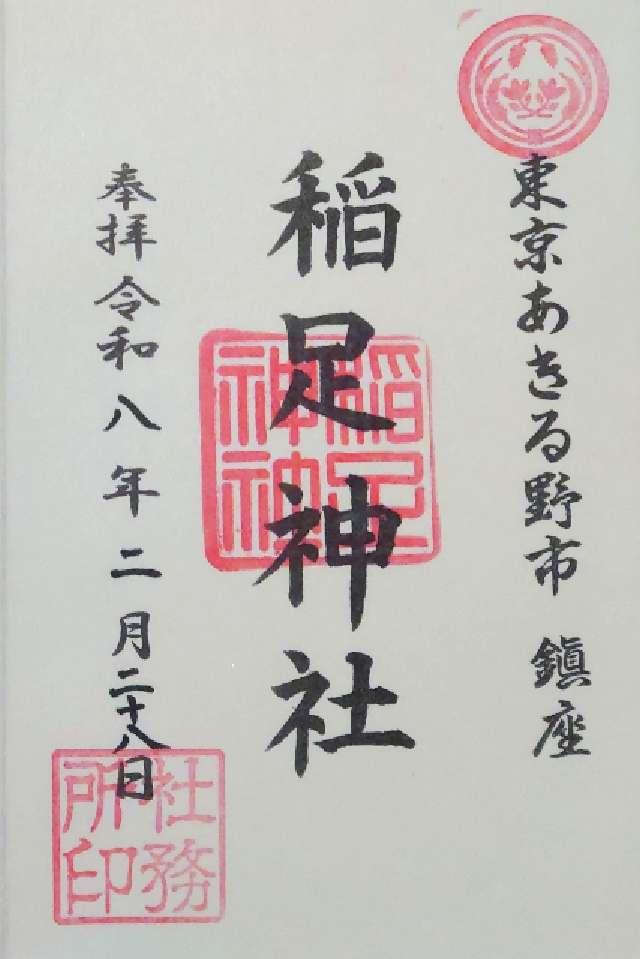 東京あきる野市 鎭座
稲足神社
奉拝 令和八年二月二十八日
稲足
神社
社務
所印